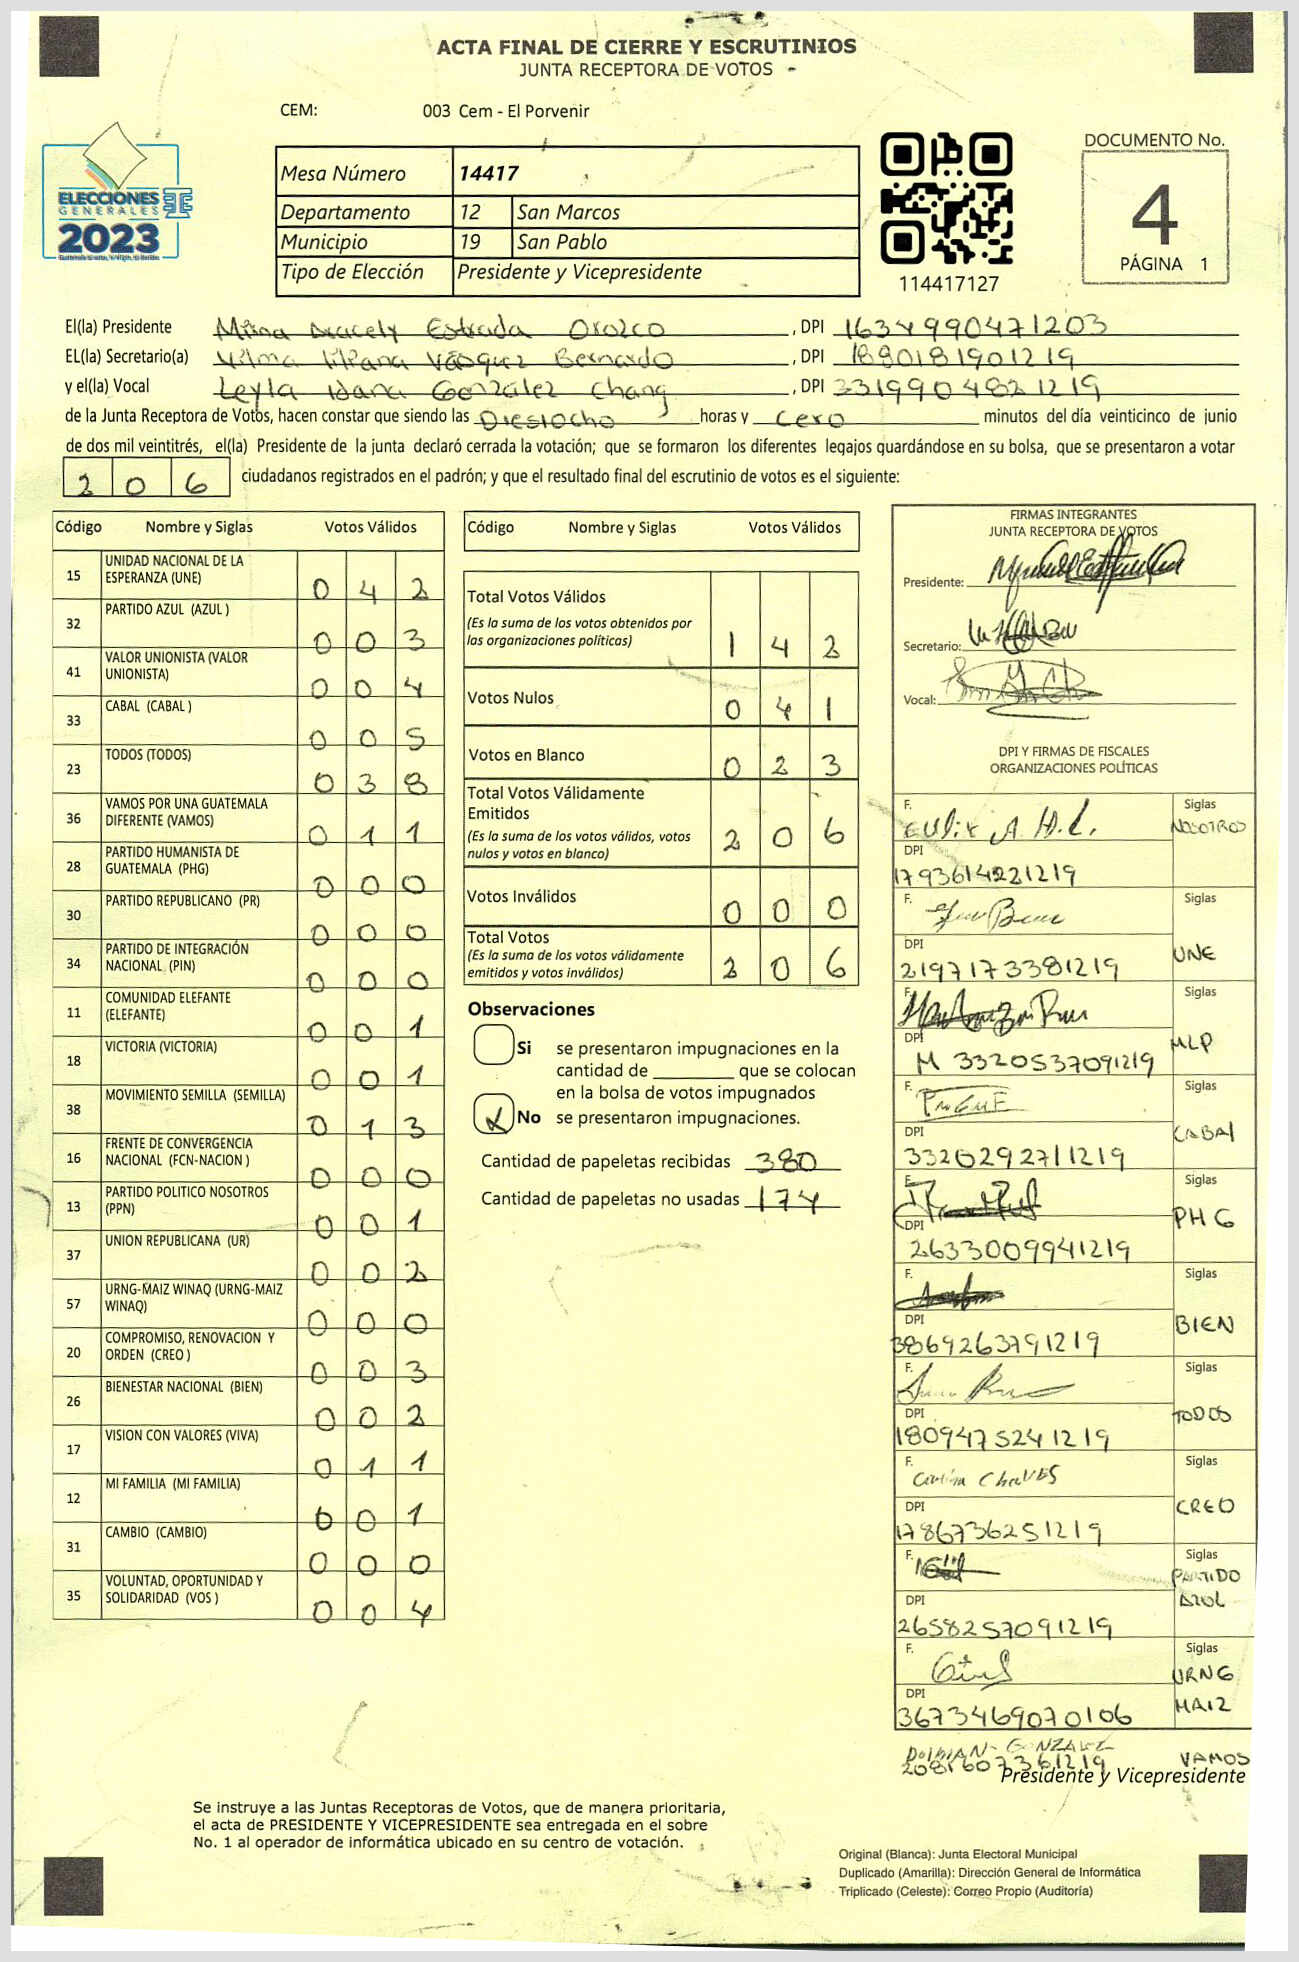 ACTA FINAL DE CIERRE Y ESCRUTINIOS
JUNTA RECEPTORA DE VOTOS
CEM: 003 Cem - El Porvenir
ELECCIONES
GENERALES
2023
Mesa Número 14417
Departamento 12 San Marcos
Municipio 19 San Pablo
Tipo de Elección Presidente y Vicepresidente
114417127
DOCUMENTO No.
4
PÁGINA 1
El(la) Presidente Mirna Aracely Estrada Orozco, DPI 1634990471203
EL(la) Secretario(a) Vilma Liliana Vásquez Bernardo, DPI 1880181901219
y el(la) Vocal Leyla Idana González Chang, DPI 3319904821219
de la Junta Receptora de Votos, hacen constar que siendo las Diesiocho horas y Cero minutos del día veinticinco de junio
de dos mil veintitrés, el(la) Presidente de la junta declaró cerrada la votación; que se formaron los diferentes legajos guardándose en su bolsa, que se presentaron a votar
206 ciudadanos registrados en el padrón; y que el resultado final del escrutinio de votos es el siguiente:
Código Nombre y Siglas Votos Válidos
15 UNIDAD NACIONAL DE LA
ESPERANZA (UNE) 0 4 2
32 PARTIDO AZUL (AZUL ) 0 0 3
41 VALOR UNIONISTA (VALOR
UNIONISTA) 0 0 4
33 CABAL (CABAL ) 0 0 5
23 TODOS (TODOS) 0 3 8
36 VAMOS POR UNA GUATEMALA
DIFERENTE (VAMOS) 0 1 1
28 PARTIDO HUMANISTA DE
GUATEMALA (PHG) 0 0 0
30 PARTIDO REPUBLICANO (PR) 0 0 0
34 PARTIDO DE INTEGRACIÓN
NACIONAL (PIN) 0 0 0
11 COMUNIDAD ELEFANTE
(ELEFANTE) 0 0 1
18 VICTORIA (VICTORIA) 0 0 1
38 MOVIMIENTO SEMILLA (SEMILLA) 0 1 3
16 FRENTE DE CONVERGENCIA
NACIONAL (FCN-NACION ) 0 0 0
13 PARTIDO POLITICO NOSOTROS
(PPN) 0 0 1
37 UNION REPUBLICANA (UR) 0 0 2
57 URNG-MAIZ WINAQ (URNG-MAIZ
WINAQ) 0 0 0
20 COMPROMISO, RENOVACION Y
ORDEN (CREO ) 0 0 3
26 BIENESTAR NACIONAL (BIEN) 0 0 2
17 VISION CON VALORES (VIVA) 0 1 1
12 MI FAMILIA (MI FAMILIA) 0 0 1
31 CAMBIO (CAMBIO) 0 0 0
35 VOLUNTAD, OPORTUNIDAD Y
SOLIDARIDAD (VOS ) 0 0 4
Código Nombre y Siglas Votos Válidos
Total Votos Válidos
(Es la suma de los votos obtenidos por
las organizaciones políticas) 1 4 2
Votos Nulos 0 4 1
Votos en Blanco 0 2 3
Total Votos Válidamente
Emitidos
(Es la suma de los votos válidos, votos
nulos y votos en blanco) 2 0 6
Votos Inválidos 0 0 0
Total Votos
(Es la suma de los votos válidamente
emitidos y votos inválidos) 2 0 6
Observaciones
Si se presentaron impugnaciones en la
cantidad de ________ que se colocan
en la bolsa de votos impugnados
No se presentaron impugnaciones.
Cantidad de papeletas recibidas 380
Cantidad de papeletas no usadas 174
FIRMAS INTEGRANTES
JUNTA RECEPTORA DE VOTOS
Presidente:
Secretario:
Vocal:
DPI Y FIRMAS DE FISCALES
ORGANIZACIONES POLÍTICAS
F. Siglas
NOSOTROS
DPI
1793614221219
F. Siglas
DPI UNE
2197173381219
F. Siglas
DPI MLP
M 3320537091219
F. Siglas
DPI CABAl
3320292711219
F. Siglas
DPI PHG
2633009941219
F. Siglas
DPI BIEN
3869263791219
F. Siglas
DPI TODOS
1809475241219
F. Chaves Siglas
DPI CREO
1786736251219
F. Siglas
PARTIDO
AZUL
DPI
2658257091219
F. Siglas
URNG
DPI MAIZ
3673469070106
GONZALEZ
2081607361219 VAMOS
Presidente y Vicepresidente
Se instruye a las Juntas Receptoras de Votos, que de manera prioritaria,
el acta de PRESIDENTE Y VICEPRESIDENTE sea entregada en el sobre
No. 1 al operador de informática ubicado en su centro de votación.
Original (Blanca): Junta Electoral Municipal
Duplicado (Amarilla): Dirección General de Informática
Triplicado (Celeste): Correo Propio (Auditoría)